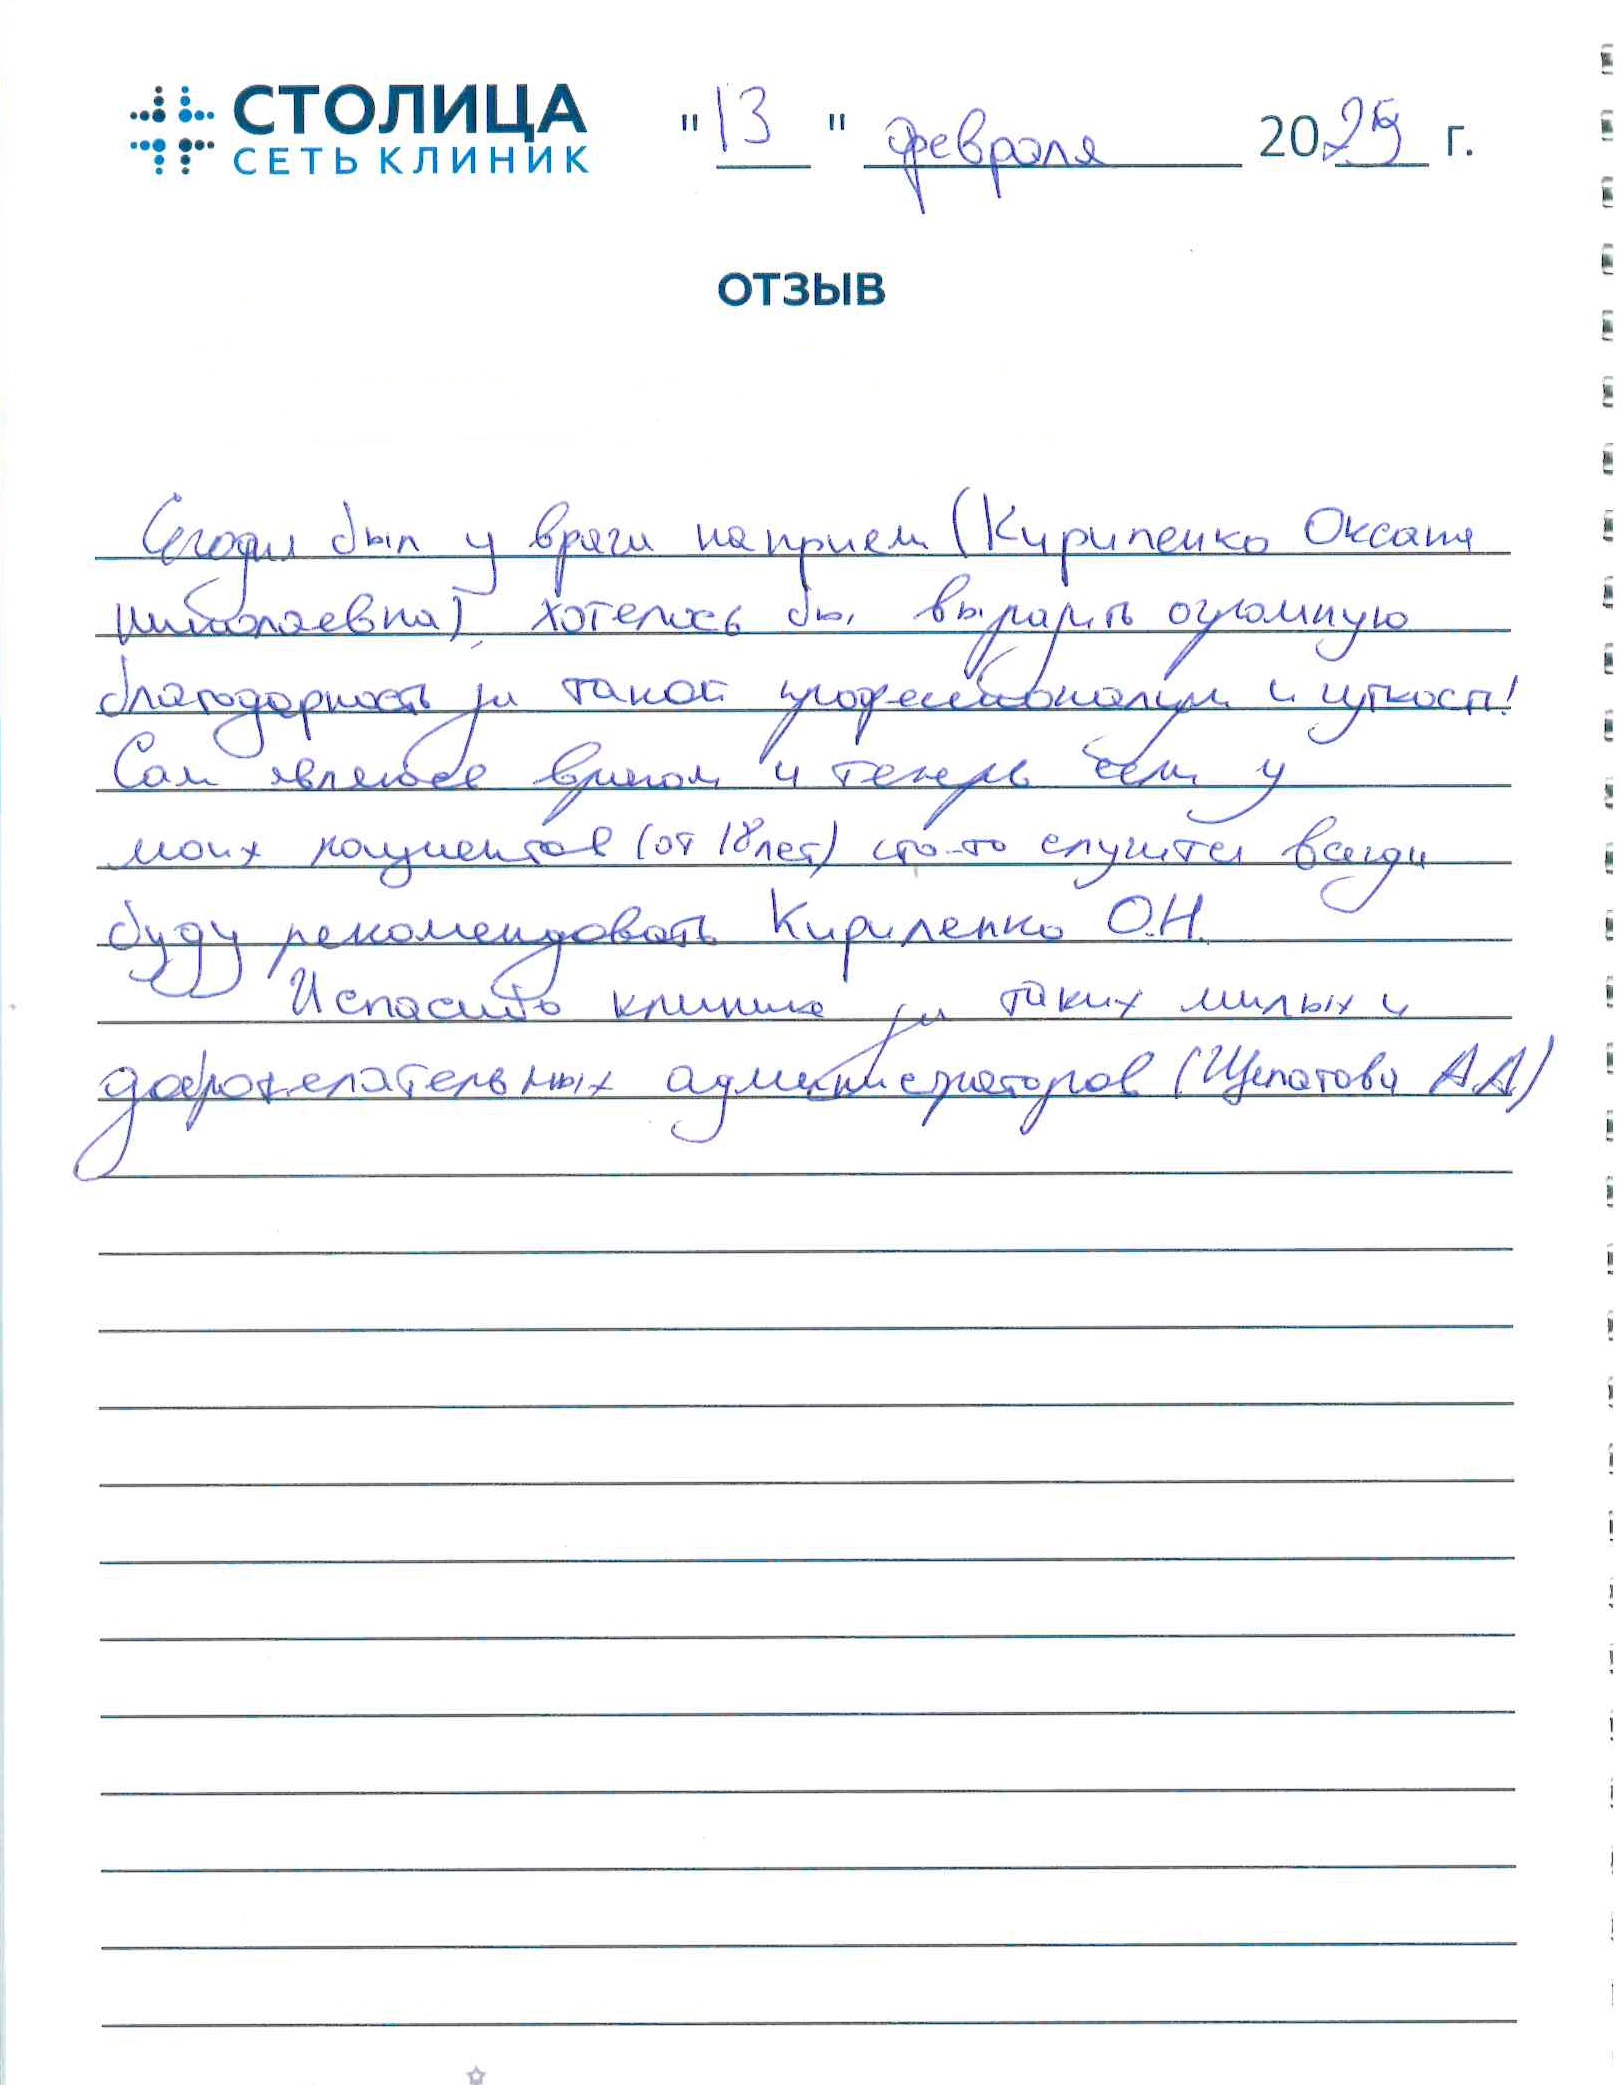 СТОЛИЦА
СЕТЬ КЛИНИК
"13" февраля 2025 г.
ОТЗЫВ
Сегодня был у врача на прием (Кириленко Оксана
Николаевна), хотелось бы выразить огромную
благодарность за такой профессионализм и чуткость!
Сам являюсь врачом и теперь если у
моих пациентов (от 18 лет) что-то случится всегда
буду рекомендовать Кириленко О.Н.
И спасибо клинике за таких милых и
доброжелательных администраторов (Щепатова А.А)